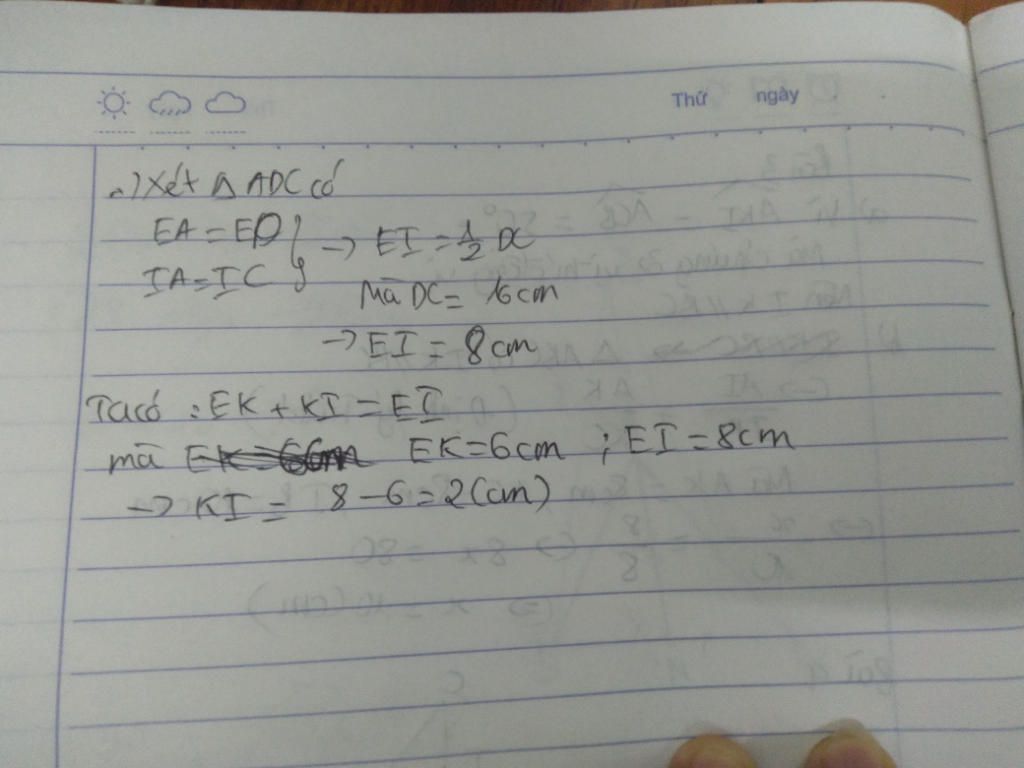 Thứ ngày
a) Xét △ ADC có
EA = ED } → EI = 1/2 DC
IA = IC
Mà DC = 16cm
→ EI = 8cm
Ta có : EK + KI = EI
mà EK = 6cm ; EI = 8cm
→ KI = 8 - 6 = 2 (cm)